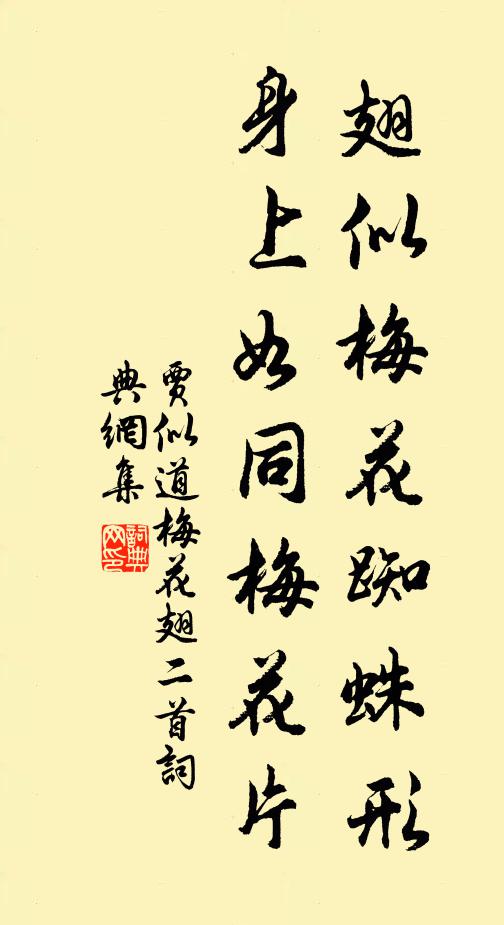 翅似梅花踟蛛形
身上如同梅花片
賈似道梅花翅二首詞
典網集
詞典
网印